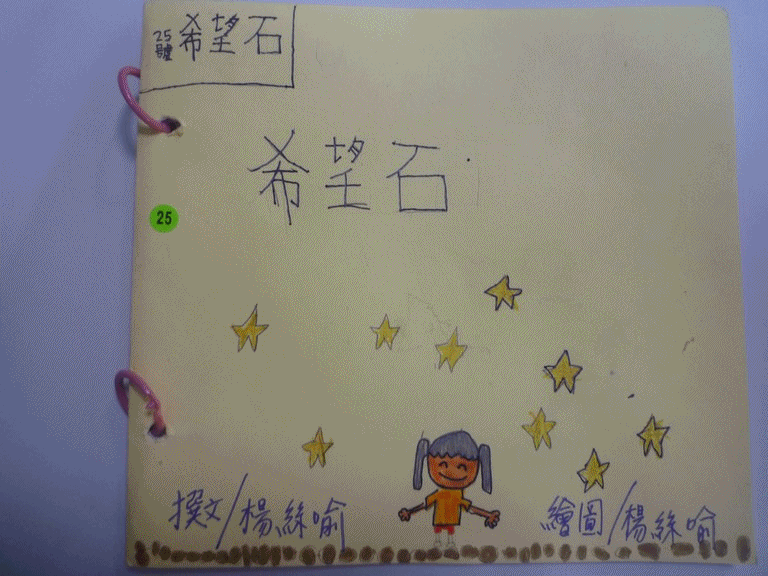 25號 希望石
希望石
25
撰文/楊絲喻
繪圖/楊絲喻